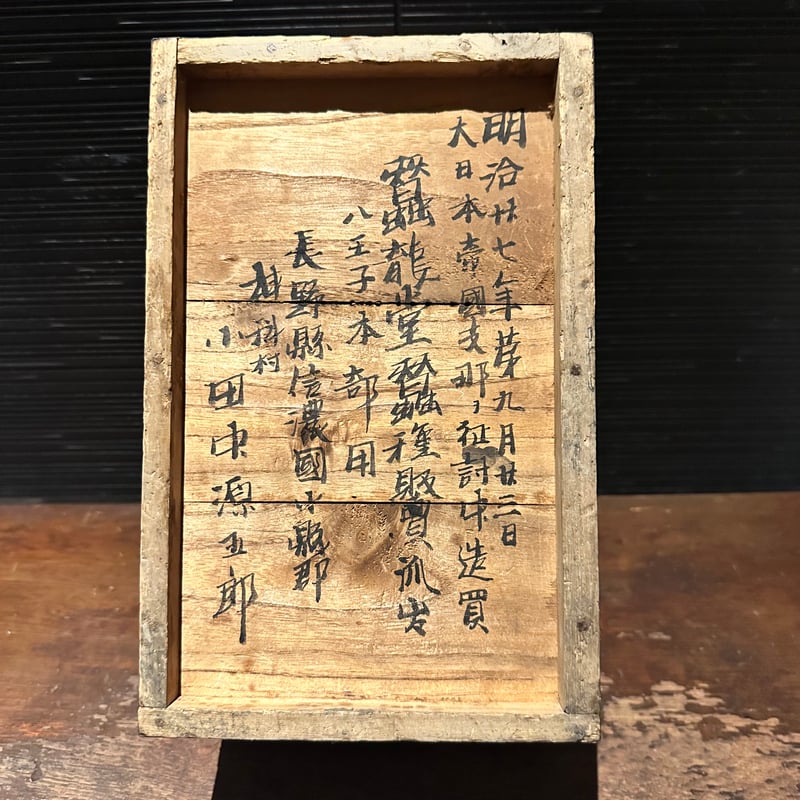 明治廿七年第九月廿三日
大日本壹國支那、征討中造買
蠶龍堂蠶種販賣
八王子本部用
長野縣信濃國小縣郡
神科村
小田中源五郎